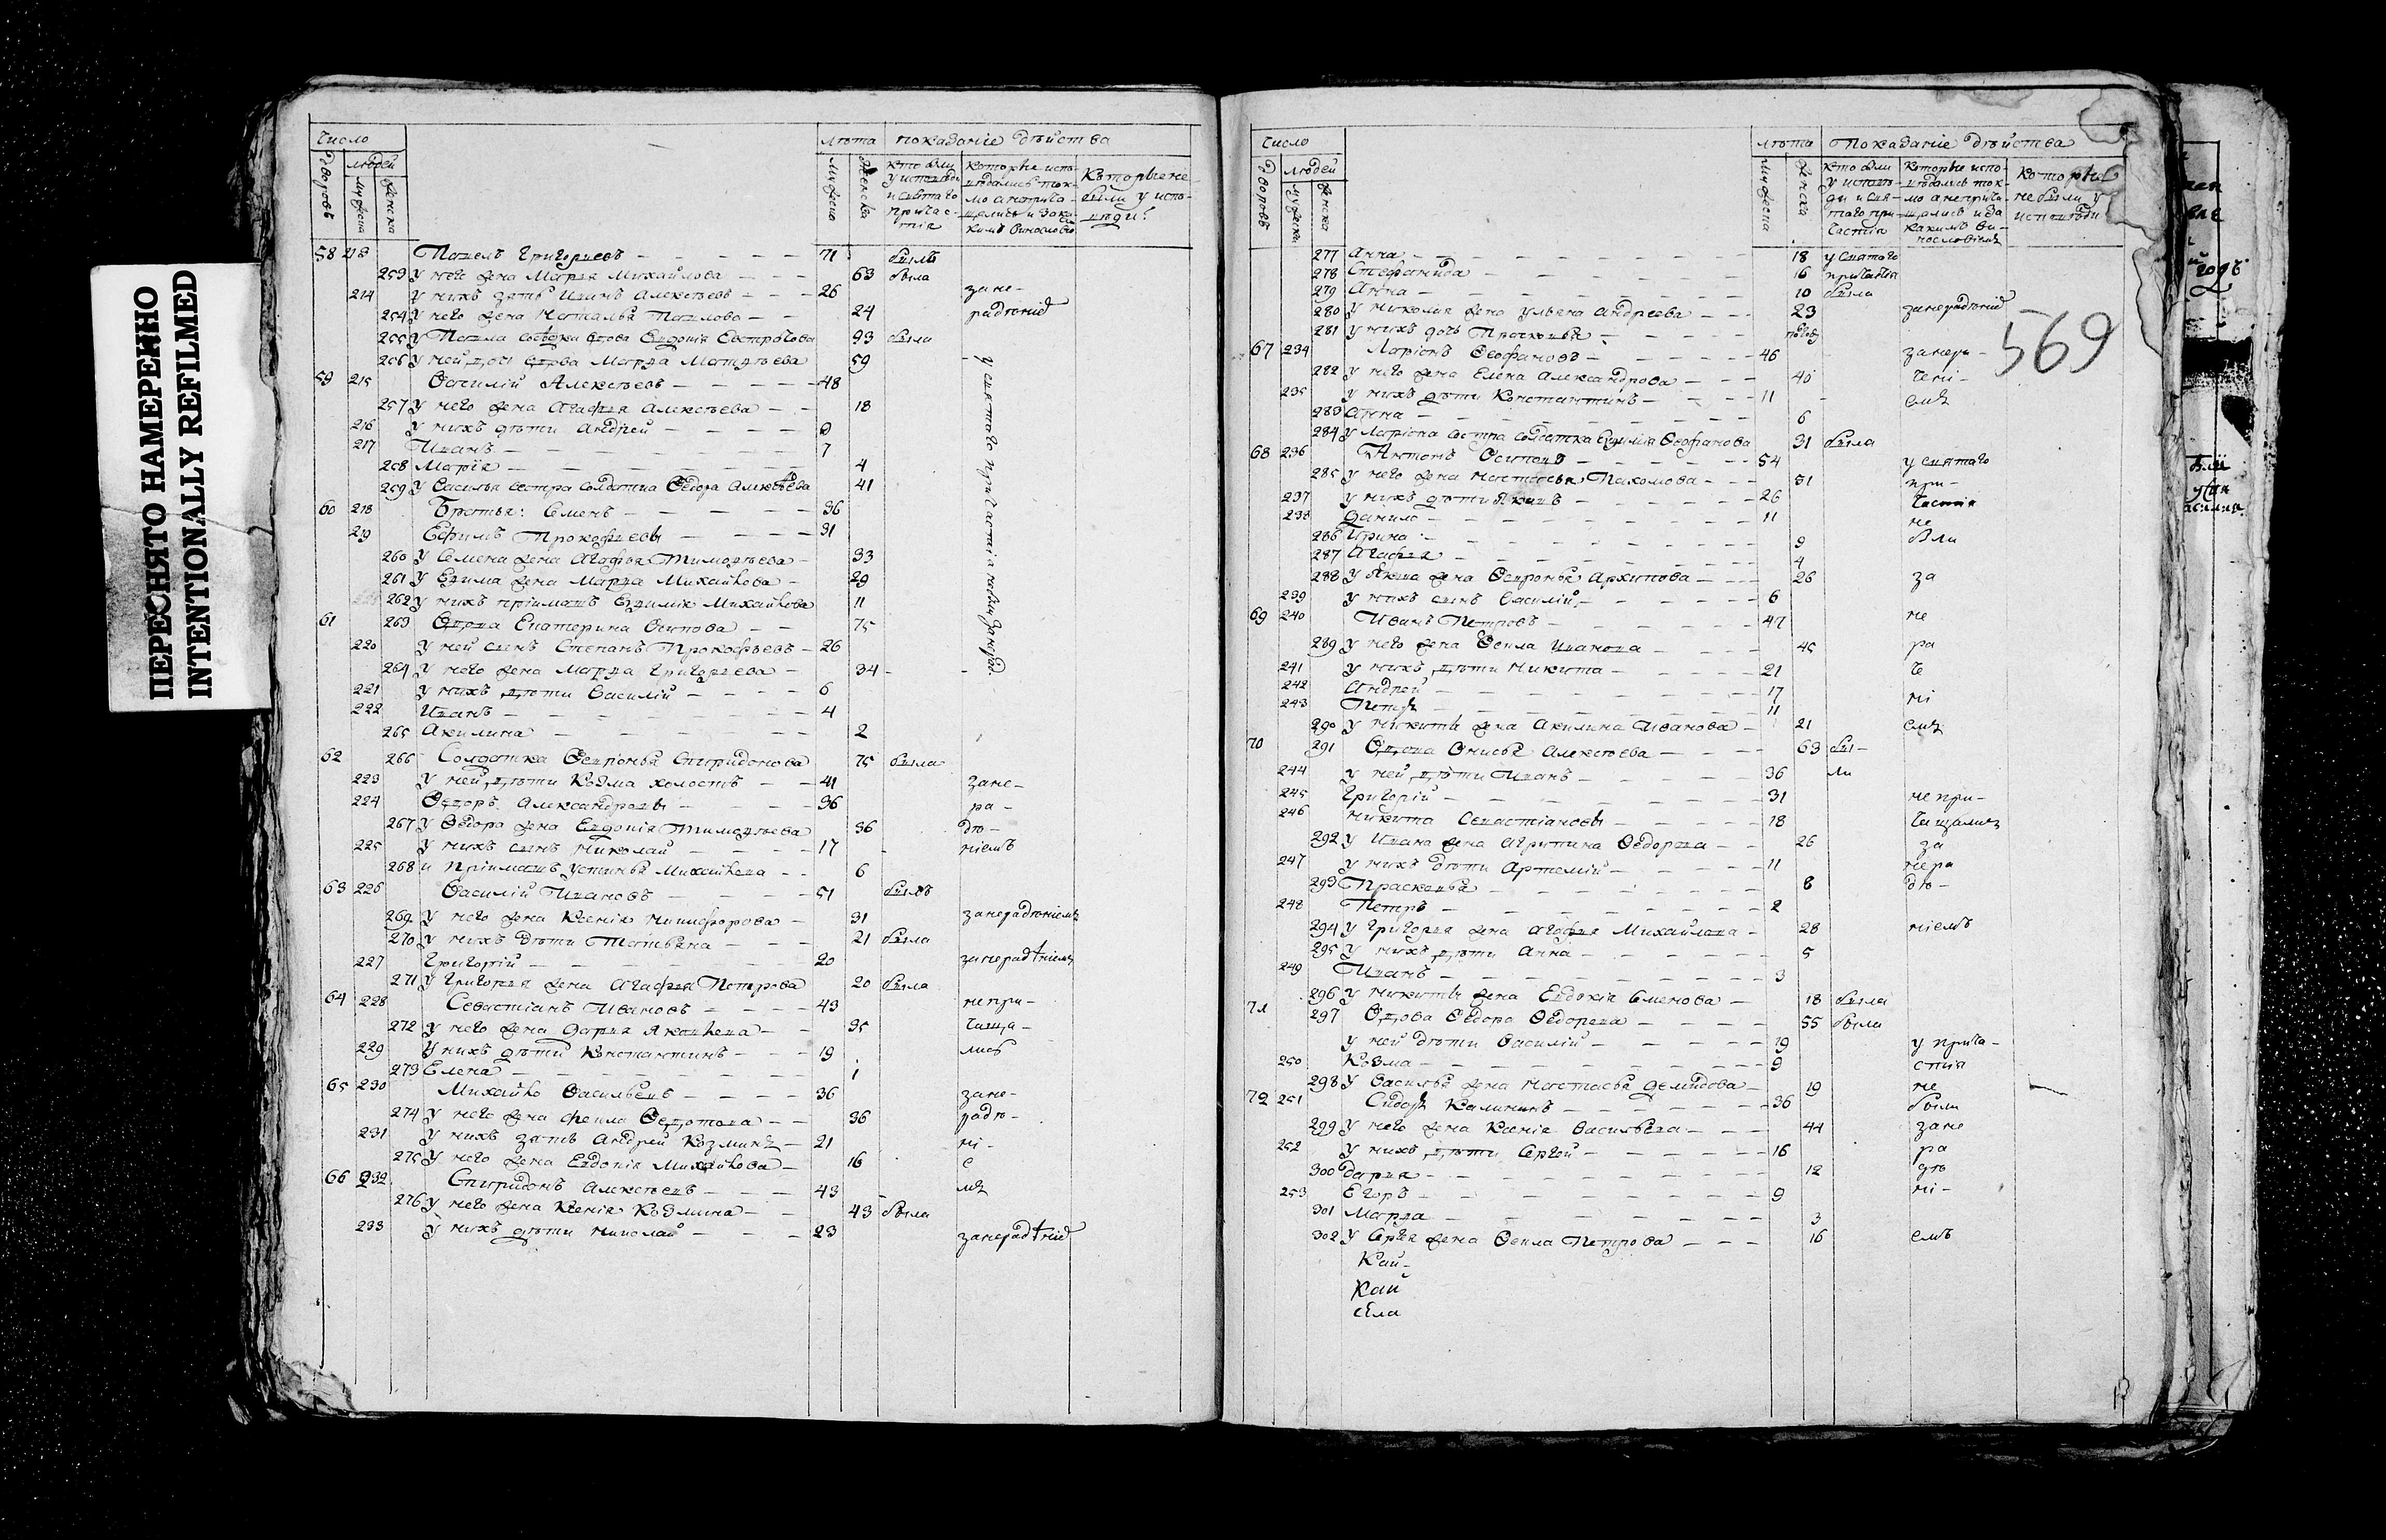 ПЕРЕСНЯТО НАМЕРЕННО
INTENTIONALLY REFILMED
число лѣта показаніе дѣйства
дворовъ людей мужеска женска
кто были у исповѣди и святаго причастія
которые исповѣдались токмо а не причащались и за какимъ винословіе
которые не были у исповѣди
58 213 Павелъ Григорьевъ 71 былъ
253 у него жена Марѳа Михайлова 63 была
214 у нихъ зять Иванъ Алексѣевъ 26 зане-
254 у него жена Наталья Павлова 24 радѣніе
255 у Павла вдова Евдокія 93 была
256 у ней вдова Марѳа Матвѣева 59
59 215 Василій Алексѣевъ 48
257 у него жена Агафья Алексѣева 18
216 у нихъ дѣти Андрей 9
217 Иванъ 7
258 Марія 4
259 у Василья сестра солдатка Ѳедора Алексѣева 41
у святаго причастія не были за нерад.
60 218 Братья: Семенъ 36
219 Ефимъ Прокофьевы 31
260 у Семена жена Агафья Тимофѣева 33
261 у Ефима жена Марѳа Михайлова 29
262 у нихъ пріимашъ Евфимія Михайлова 11
61 263 Вдова Екатерина Осипова 75
220 у ней сынъ Степанъ Прокофьевъ 26
264 у него жена Марѳа Григорьева 34
221 у нихъ дѣти Василій 6
222 Иванъ 4
265 Акилина 2
62 266 Солдатка Ѳевронья Спиридонова 75 была
223 у ней дѣти Козма холостъ 41 зане-
224 Ѳедоръ Александровы 36 ра-
267 у Ѳедора жена Евдокія Тимофѣева 36 дѣ-
225 у нихъ сынъ Николай 17 ніемъ
268 и пріимашъ Устинья Михайлова 6
63 226 Василій Ивановъ 51 былъ
269 у него жена Ксенія Никифорова 31 занерадѣніемъ
270 у нихъ дѣти Татьяна 21 была
227 Григорій 20 занерадѣніемъ
271 у Григорья жена Агафья Петрова 20 была
64 228 Севастіанъ Ивановъ 43 не при-
272 у него жена Дарья Яковлева 35 чаща-
229 у нихъ дѣти Константинъ 19 лись
273 Елена 1
65 230 Михайло Васильевъ 36 зане-
274 у него жена Ѳекла Ѳедотова 36 радѣ-
231 у нихъ зять Андрей Козминъ 21 ні-
275 у него жена Евдокія Михайлова 16 е
66 232 Спиридонъ Алексѣевъ 43 мъ
276 у него жена Ксенія Козмина 43 была
233 у нихъ дѣти Николай 23 занерадѣніе
число лѣта показаніе дѣйства
дворовъ людей мужеска женска
кто были у исповѣди и святаго причастія
которые исповѣдались токмо а не причащались и за какимъ винословіемъ
которые не были у исповѣди
569
277 Анна 18 у святаго
278 Стефанида 16 причастія
279 Анна 10 была
280 у Николая жена Ульяна Андреева 23 занерадѣніе
281 у нихъ дочь Прасковья
67 234 Ларіонъ Ѳеофановъ 46 занера-
282 у него жена Елена Александрова 40
235 у нихъ дѣти Константинъ 11 емъ
283 Анна 6
284 у Ларіона сестра солдатка Евфимія Ѳеофанова 31 была
68 236 Антонъ Осиповъ 54 у святаго
285 у него жена Настасья Пахомова 51 при-
237 у нихъ дѣти Яковъ 26 частія
238 Данило 11 не
286 Ирина 9 были
287 Агафья 4
288 у Якова жена Ѳевронья Архипова 26 за
239 у нихъ сынъ Василій 6
69 240 Иванъ Петровъ 47 не
289 у него жена Ѳекла Иванова 45 ра
241 у нихъ дѣти Никита 21
242 Андрей 17 ні
243 Петръ 11
290 у Никиты жена Акилина Иванова 21 емъ
70 291 Вдова Анисья Алексѣева 63 бы-
244 у ней дѣти Иванъ 36 ли
245 Григорій 31 не при-
246 Никита Севастіановы 18 чащались
292 у Ивана жена Агрипина Ѳедорова 26 за
247 у нихъ дѣти Артемій 11 нера
293 Прасковья 8 дѣ-
248 Петръ 2
294 у Григорья жена Агафья Михайлова 28 ніемъ
295 у нихъ дѣти Анна 5
249 Иванъ 3
296 у Никиты жена Евдокія Семенова 18 была
71 297 Вдова Ѳедора Ѳедорова 55 была
у ней дѣти Василій 19 у прича-
250 Козма 9 стія
298 у Василья жена Настасья Демидова 19 не
72 251 Сидоръ Калининъ 36 были
299 у него жена Ксенія Васильева 44 зане
252 у нихъ дѣти Сергей 16 ра
300 Дарья 12 дѣ
253 Егоръ 9 ні-
301 Марѳа 3
302 у Сергея жена Ѳекла Петрова 16 емъ
Кай-
Кай
села